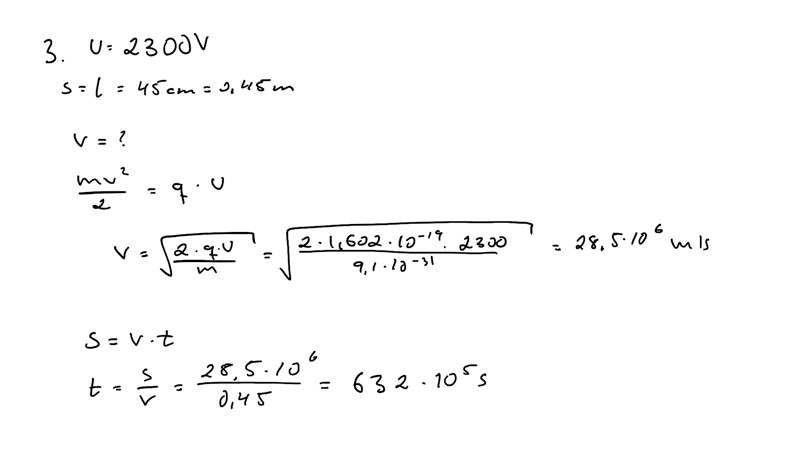 3. U = 2300V
s = l = 45cm = 0,45m
v = ?
mv²/2 = q · U
v = √(2·q·U/m) = √(2·1,602·10⁻¹⁹·2300/9,1·10⁻³¹) = 28,5·10⁶ m/s
s = v·t
t = s/v = 28,5·10⁶/0,45 = 632·10⁵ s